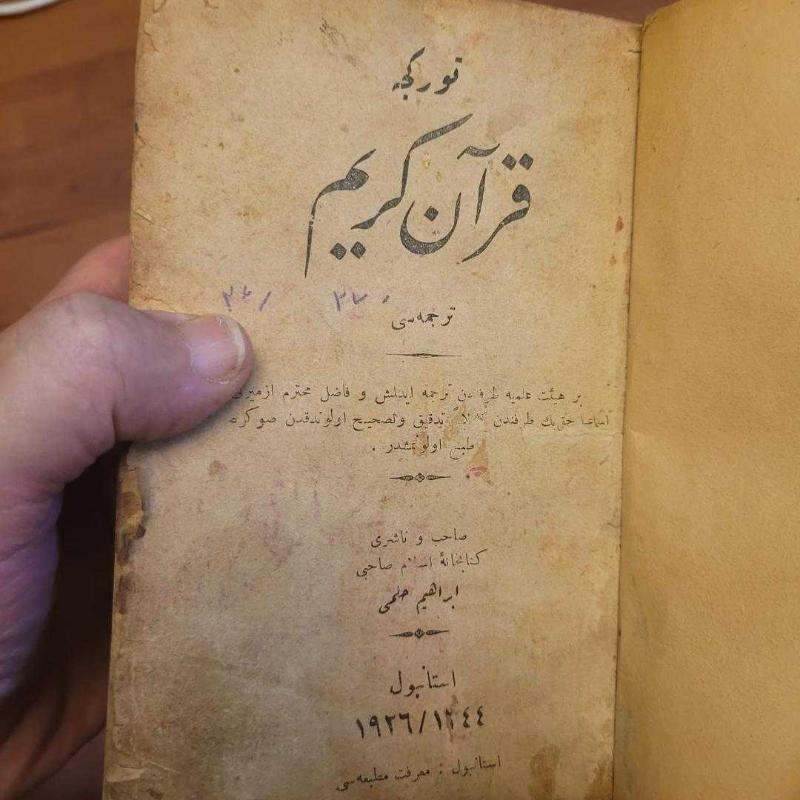 تورکجه
قرآن کریم
ترجمه‌سی
بر هیئت علمیه طرفندن ترجمه ایدلمش و فاضل محترم ازمیرلی
اسماعیل حقی بك طرفندن تدقیق وتصحیح اولوندقدن صوکره
طبع اولونمشدر .
صاحب و ناشری
کتابخانهٔ اسلام صاحبی
ابراهیم حلمی
استانبول
١٩٢٦/١٣٤٤
استانبول : معرفت مطبعه‌سی